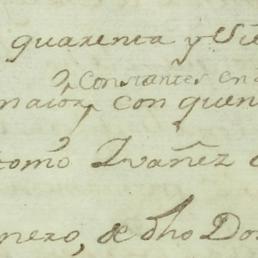 quarenta y Sie
Constantes en
maior, con quen
tomo Yvañez
enero, de dho Do